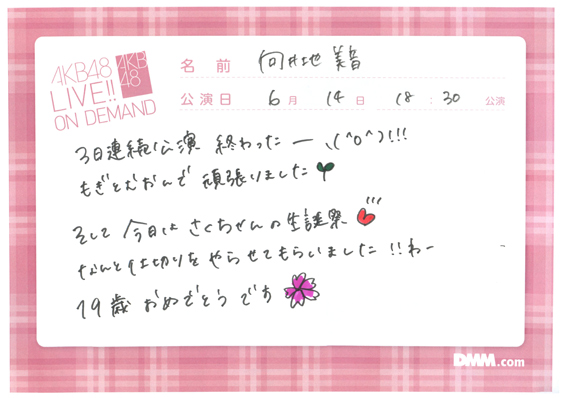 AKB48
LIVE!!
ON DEMAND
AKB
48
名前 向井地 美音
公演日 6月 14日 18:30 公演
3日連続公演 終わったー、(^o^)!!!
もぎとむおんで 頑張りました
そして 今日は さくちゃんの生誕祭
なんと仕切りを やらせてもらいました!!わー
19歳 おめでとう です
DMM.com